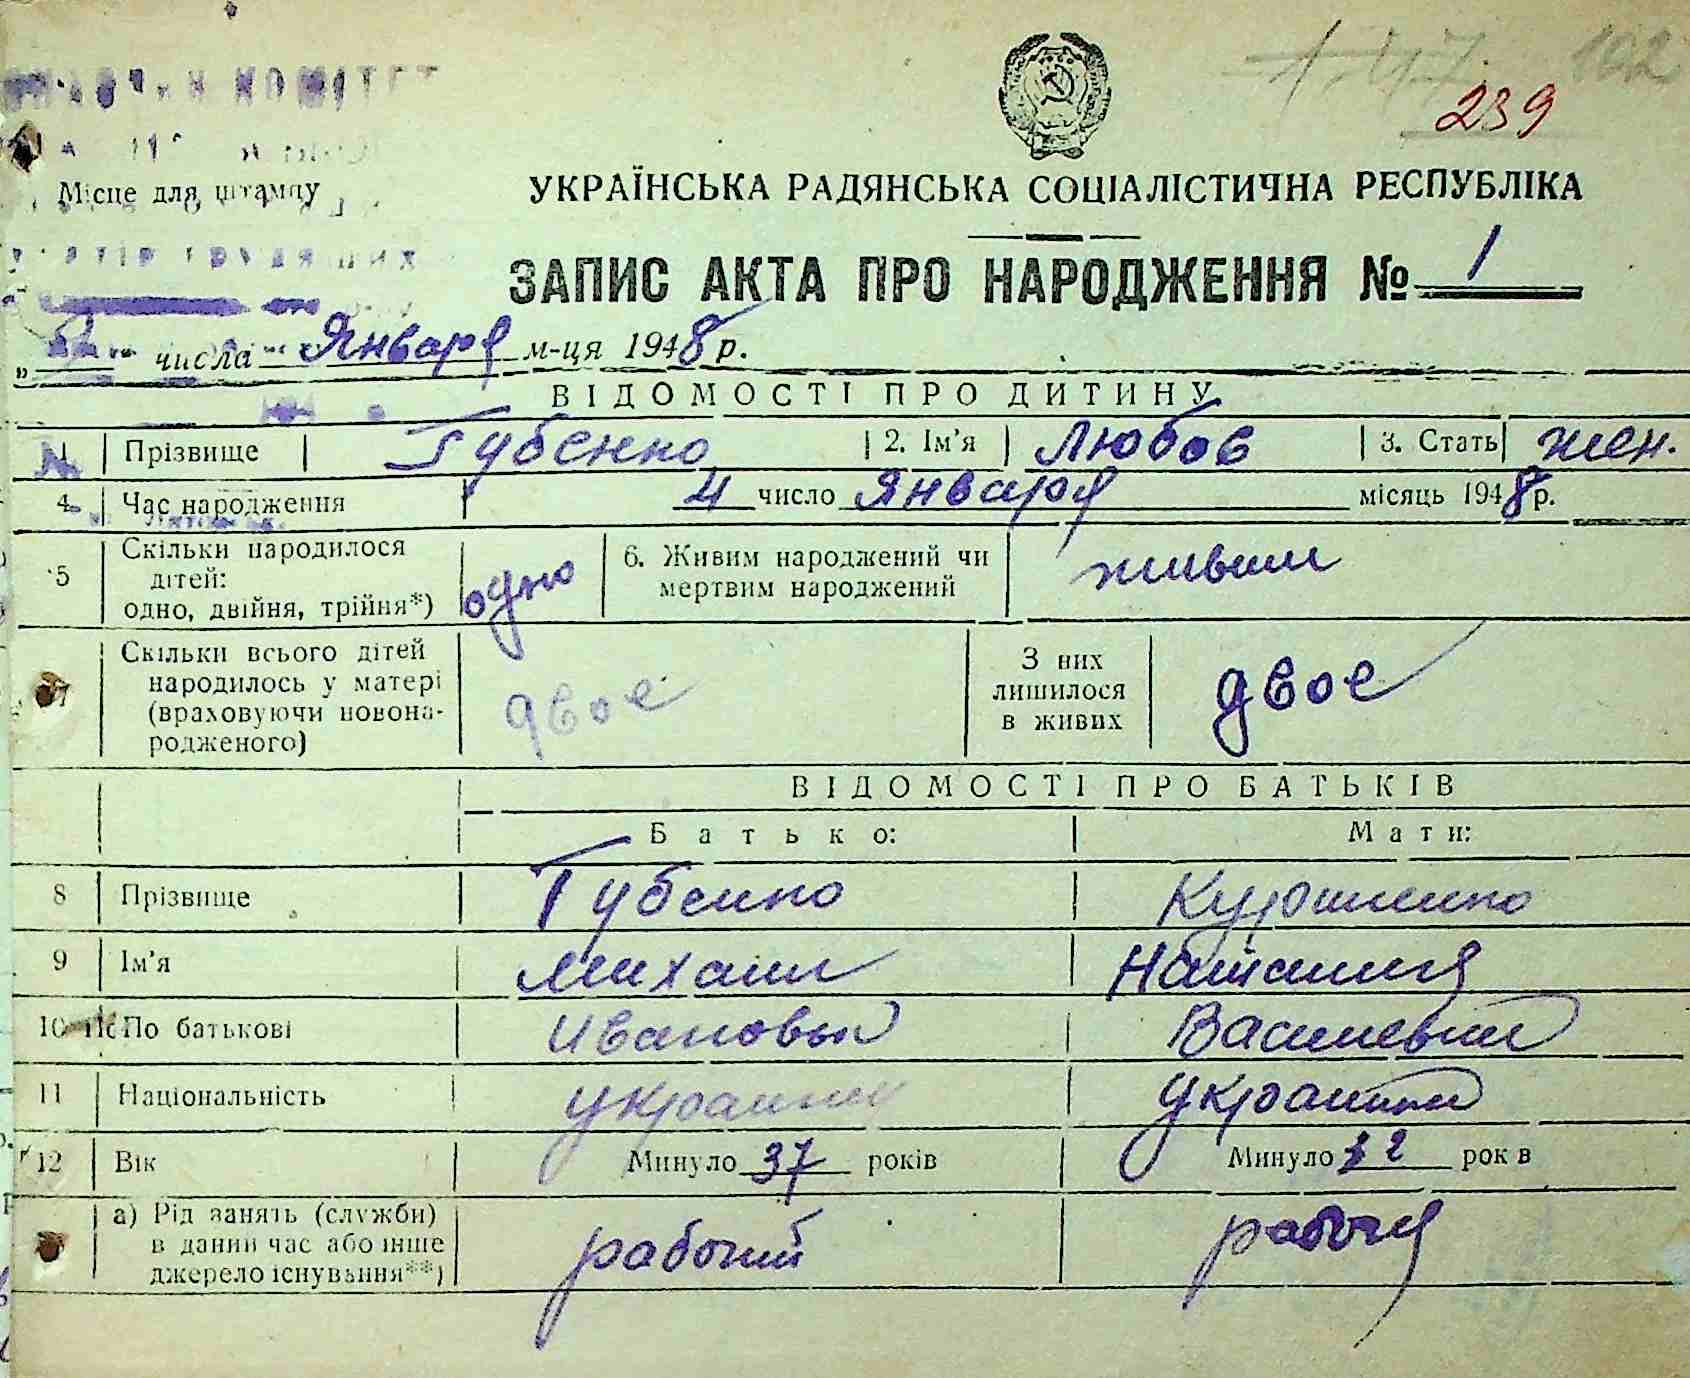 КОМІТЕТ
102
239
Місце для штампу
УКРАЇНСЬКА РАДЯНСЬКА СОЦІАЛІСТИЧНА РЕСПУБЛІКА
ЗАПИС АКТА ПРО НАРОДЖЕННЯ № 1
числа Января м-ця 1948 р.
ВІДОМОСТІ ПРО ДИТИНУ
1 Прізвище Губенко 2. Ім'я Любов 3. Стать жен.
4 Час народження 4 число Января місяць 1948 р.
5 Скільки народилося дітей: одно, двійня, трійня*) одно 6. Живим народжений чи мертвим народжений живым
Скільки всього дітей народилось у матері (враховуючи новонародженого) двое З них лишилося в живих двое
ВІДОМОСТІ ПРО БАТЬКІВ
Батько: Мати:
8 Прізвище Губенко
9 Ім'я Михаил Наталия
10 По батькові Иванович Васильевна
11 Національність украинец украинка
12 Вік Минуло 37 років Минуло 32 рок в
а) Рід занять (служби) в даний час або інше джерело існування**) рабочий рабочая